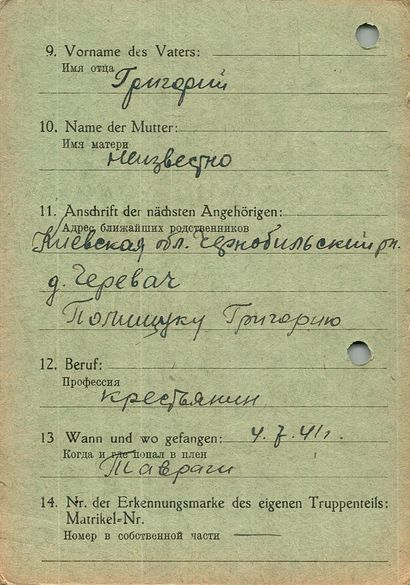 9. Vorname des Vaters:
Имя отца
Григорий
10. Name der Mutter:
Имя матери
неизвестно
11. Anschrift der nächsten Angehörigen:
Адрес ближайших родственников
Киевская обл. Чернобильский рн.
д. Черевач
Полищуку Григорию
12. Beruf:
Профессия
крестьянин
13 Wann und wo gefangen: 4.7.41г.
Когда и где попал в плен
Тавраги
14. Nr. der Erkennungsmarke des eigenen Truppenteils:
Matrikel-Nr.
Номер в собственной части —